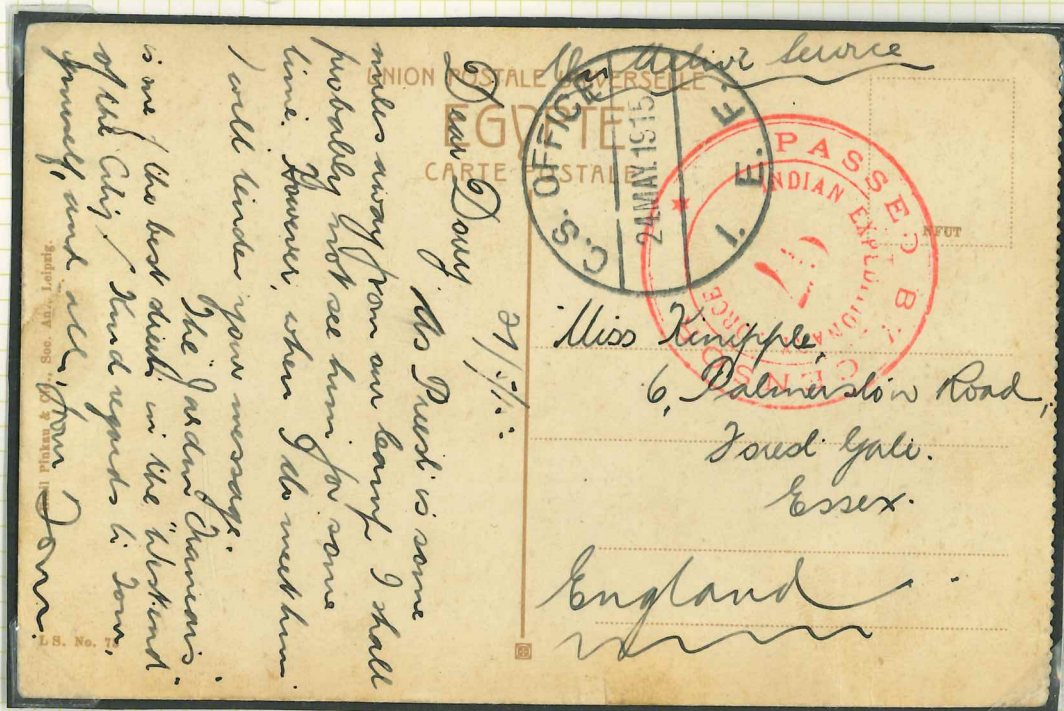 On Active Service
UNION POSTALE UNIVERSELLE
EGYPTE
CARTE POSTALE
C.S. OFFICE
24 MAY. 1915
I. E. F.
PASSED BY CENSOR
INDIAN EXPEDITIONARY FORCE
Miss Kinipple,
6, Palmerston Road,
Forest Gate.
Essex.
England
21/5/15
Dear Dovey
As Preest is some
miles away from our camp I shall
probably not see him for some
time. However, when I do meet him
I will tender your message.
The "Jardin Francais"
is one of the best streets in the "West end"
of the City. Kind regards to Tom,
yourself, and all, from Tom.
Pinkau & Co., Soc. An., Leipzig.
L S. No.